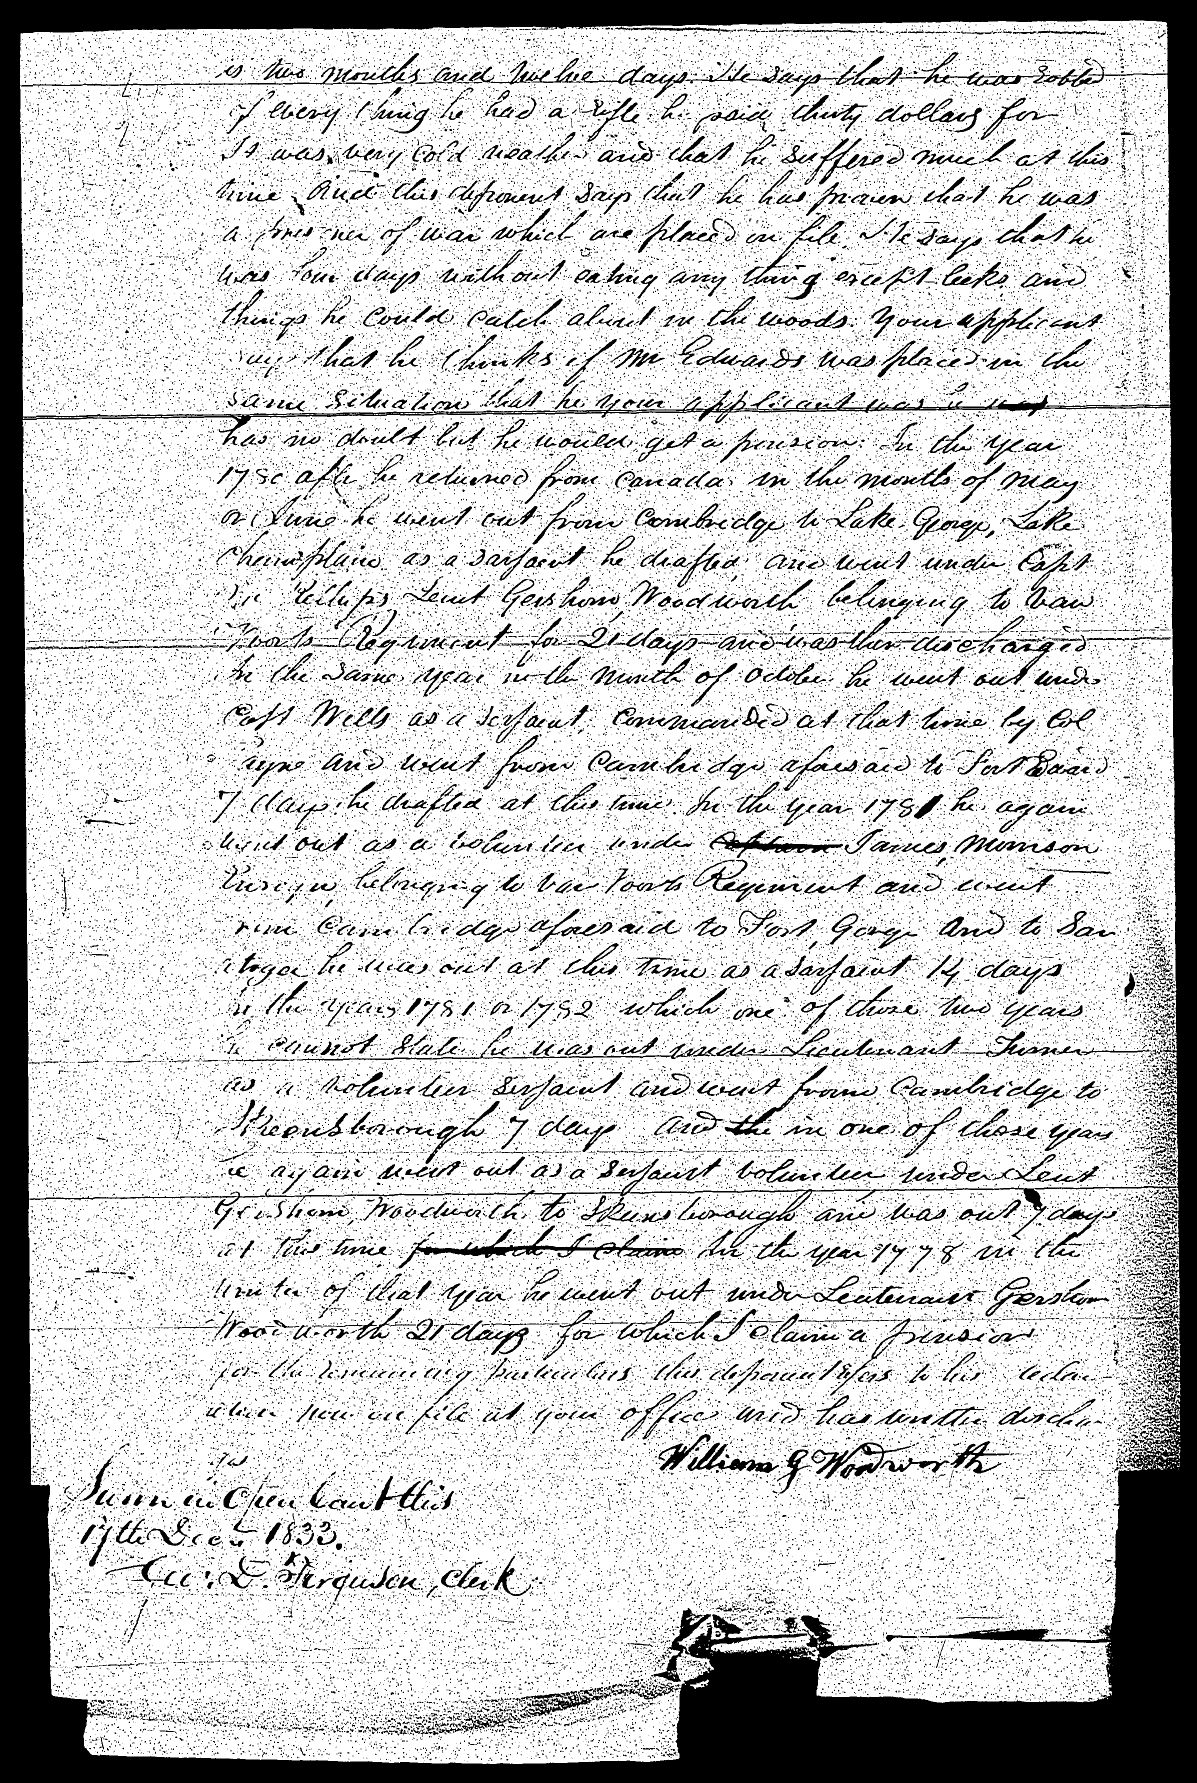 is two months and twelve days. He says that he was Robbed
of every thing he had a rifle he paid thirty dollars for
It was very Cold weather and that he suffered much at this
time. And this deponent says that he has proven that he was
a prisoner of war which are placed on file. He says that he
was four days without eating any thing except leeks and
things he Could catch about in the woods. Your applicant
says that he thinks if Mr Edwards was placed in the
same situation that he your applicant was he was
has no doubt but he would get a pension. In the year
1780 after he returned from Canada in the months of may
or June he went out from Cambridge to Lake George, Lake
Champlain as a sarjaent he drafted and went under Capt
Phillips, Leut Gershom Woodworth belinging to Van
Woorts Regiment for 21 days and was then discharged
In the Same year in the month of October he went out under
Capt Wells as a serjaint. Commanded at that time by Col
and went from Cambridge aforesaid to Fort Edward
7 days he drafted at this time. In the year 1781 he again
went out as a volunteer under Captain James Morrison
Ensign, belonging to Van Voorts Regiment and went
from Cambridge aforesaid to Fort George And to Sar
atoga he was out at this time as a Sarjaint 14 days
in the years 1781 or 1782 which one of those two years
he cannot state he was out under Lieutenant Turner
as a volunteer serjaint and went from Cambridge to
Skeensborough 7 days and the in one of those years
he again went out as a serjaint volunteer under Leut
Gershom Woodworth to Skeensborough and was out 7 days
at this time for which I claim In the year 1778 in the
winter of that year he went out under Leutenant Gershom
Woodworth 21 days for which I claim a pension
for the remaining particulars this deponent refers to his declar
ation now on file at your office and has written dischar
ges
William G Woodworth
Sworn in Open Court this
17th Decr 1833.
Ferguson, Clerk